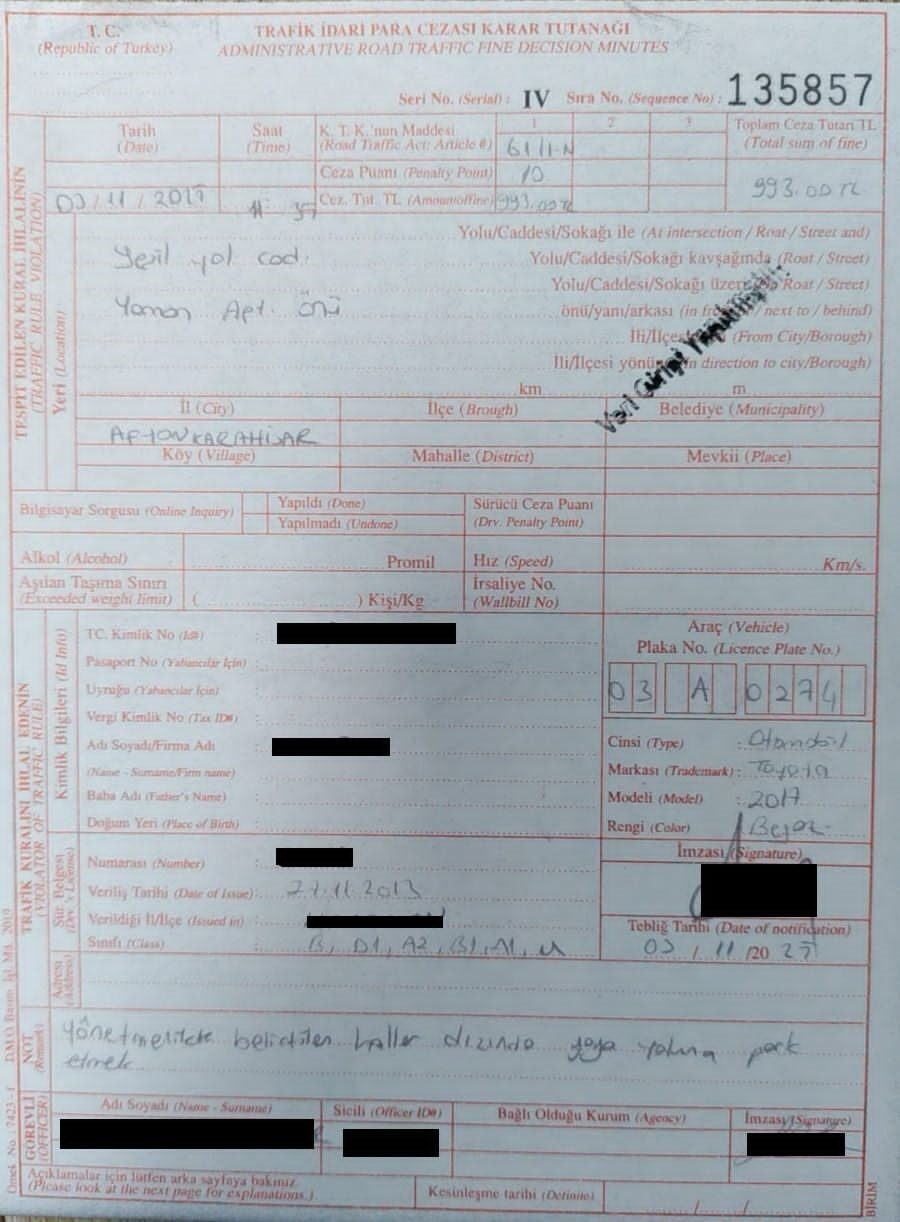 T. C.
(Republic of Turkey)
TRAFİK İDARİ PARA CEZASI KARAR TUTANAĞI
ADMINISTRATIVE ROAD TRAFFIC FINE DECISION MINUTES
Seri No. (Serial) : IV Sıra No. (Sequence No) : 135857
TESPİT EDİLEN KURAL İHLALİNİN
(TRAFFIC RULE VIOLATION)
Tarih
(Date)
Saat
(Time)
K. T. K.'nun Maddesi
(Road Traffic Act: Article #)
1 2 3
61/1-N
Toplam Ceza Tutarı TL
(Total sum of fine)
Ceza Puanı (Penalty Point) 10
993.00 TL
03/11/2025
11:35
Cez. Tut. TL (Amountoffine) 993.00 TL
Yeri (Location)
Yolu/Caddesi/Sokağı ile (At intersection / Roat / Street and)
Yeşil yol cad.
Yolu/Caddesi/Sokağı kavşağında (Roat / Street)
Yolu/Caddesi/Sokağı üzerinde Roat / Street)
Yaman Apt. önü
önü/yanı/arkası (in front / next to / behind)
İli/İlçesi (From City/Borough)
İli/İlçesi yönüne in direction to city/Borough)
Veri Girişi Yapılmıştır.
km m
İl (City) İlçe (Brough) Belediye (Municipality)
AFYONKARAHİSAR
Köy (Village) Mahalle (District) Mevkii (Place)
Bilgisayar Sorgusu (Online Inquiry)
Yapıldı (Done)
Yapılmadı (Undone)
Sürücü Ceza Puanı
(Drv. Penalty Point)
Alkol (Alcohol) Promil Hız (Speed) Km/s.
Aşılan Taşıma Sınırı
(Exceeded weight limit) ( ) Kişi/Kg
İrsaliye No.
(Wallbill No)
TRAFİK KURALINI İHLAL EDENİN
(VIOLATOR OF TRAFFIC RULE)
Kimlik Bilgileri (Id Info)
TC. Kimlik No (Id#) :
Pasaport No (Yabancılar İçin) :
Uyruğu (Yabancılar İçin) :
Vergi Kimlik No (Tax ID#) :
Adı Soyadı/Firma Adı :
(Name - Surname/Firm name) :
Baba Adı (Father's Name) :
Doğum Yeri (Place of Birth) :
Araç (Vehicle)
Plaka No. (Licence Plate No.)
03 A 0274
Cinsi (Type) : Otomobil
Markası (Trademark) : Toyota
Modeli (Model) : 2017
Rengi (Color) : Beyaz
Sür. Belgesi
(Drv.'s Licence)
Numarası (Number) :
Veriliş Tarihi (Date of Issue) : 27.11.2013
Verildiği İl/İlçe (Issued in) :
Sınıfı (Class) : B, D1, A2, B1, A1, M
İmzası (Signature)
Tebliğ Tarihi (Date of notification)
03 / 11 /20 25
Adresi
(Address)
NOT
(Remark)
Yönetmelikte belirtilen haller dışında yaya yoluna park
etmek
GÖREVLİ
(OFFICER)
Adı Soyadı (Name - Surname) Sicili (Officer ID#) Bağlı Olduğu Kurum (Agency) İmzası (Signature)
Açıklamalar için lütfen arka sayfaya bakınız.
(Please look at the next page for explanations.)
Kesinleşme tarihi (Definite) / /
Örnek No. : 7423 - 1 DMO Basım İşl. Md. 2019
BİRİM